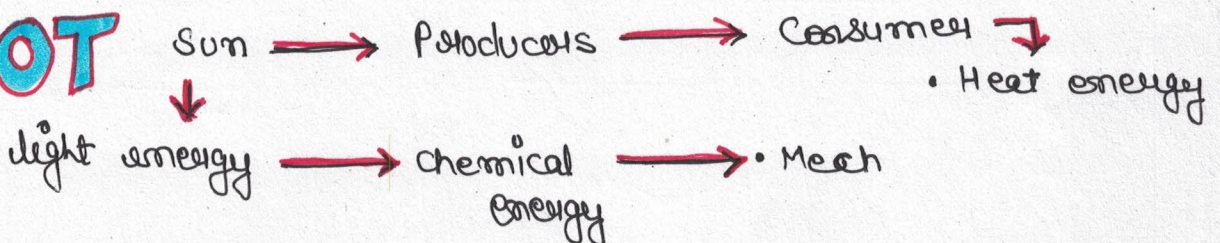 OT Sun → Producers → Consumer
• Heat energy
light energy → chemical → • Mech
energy